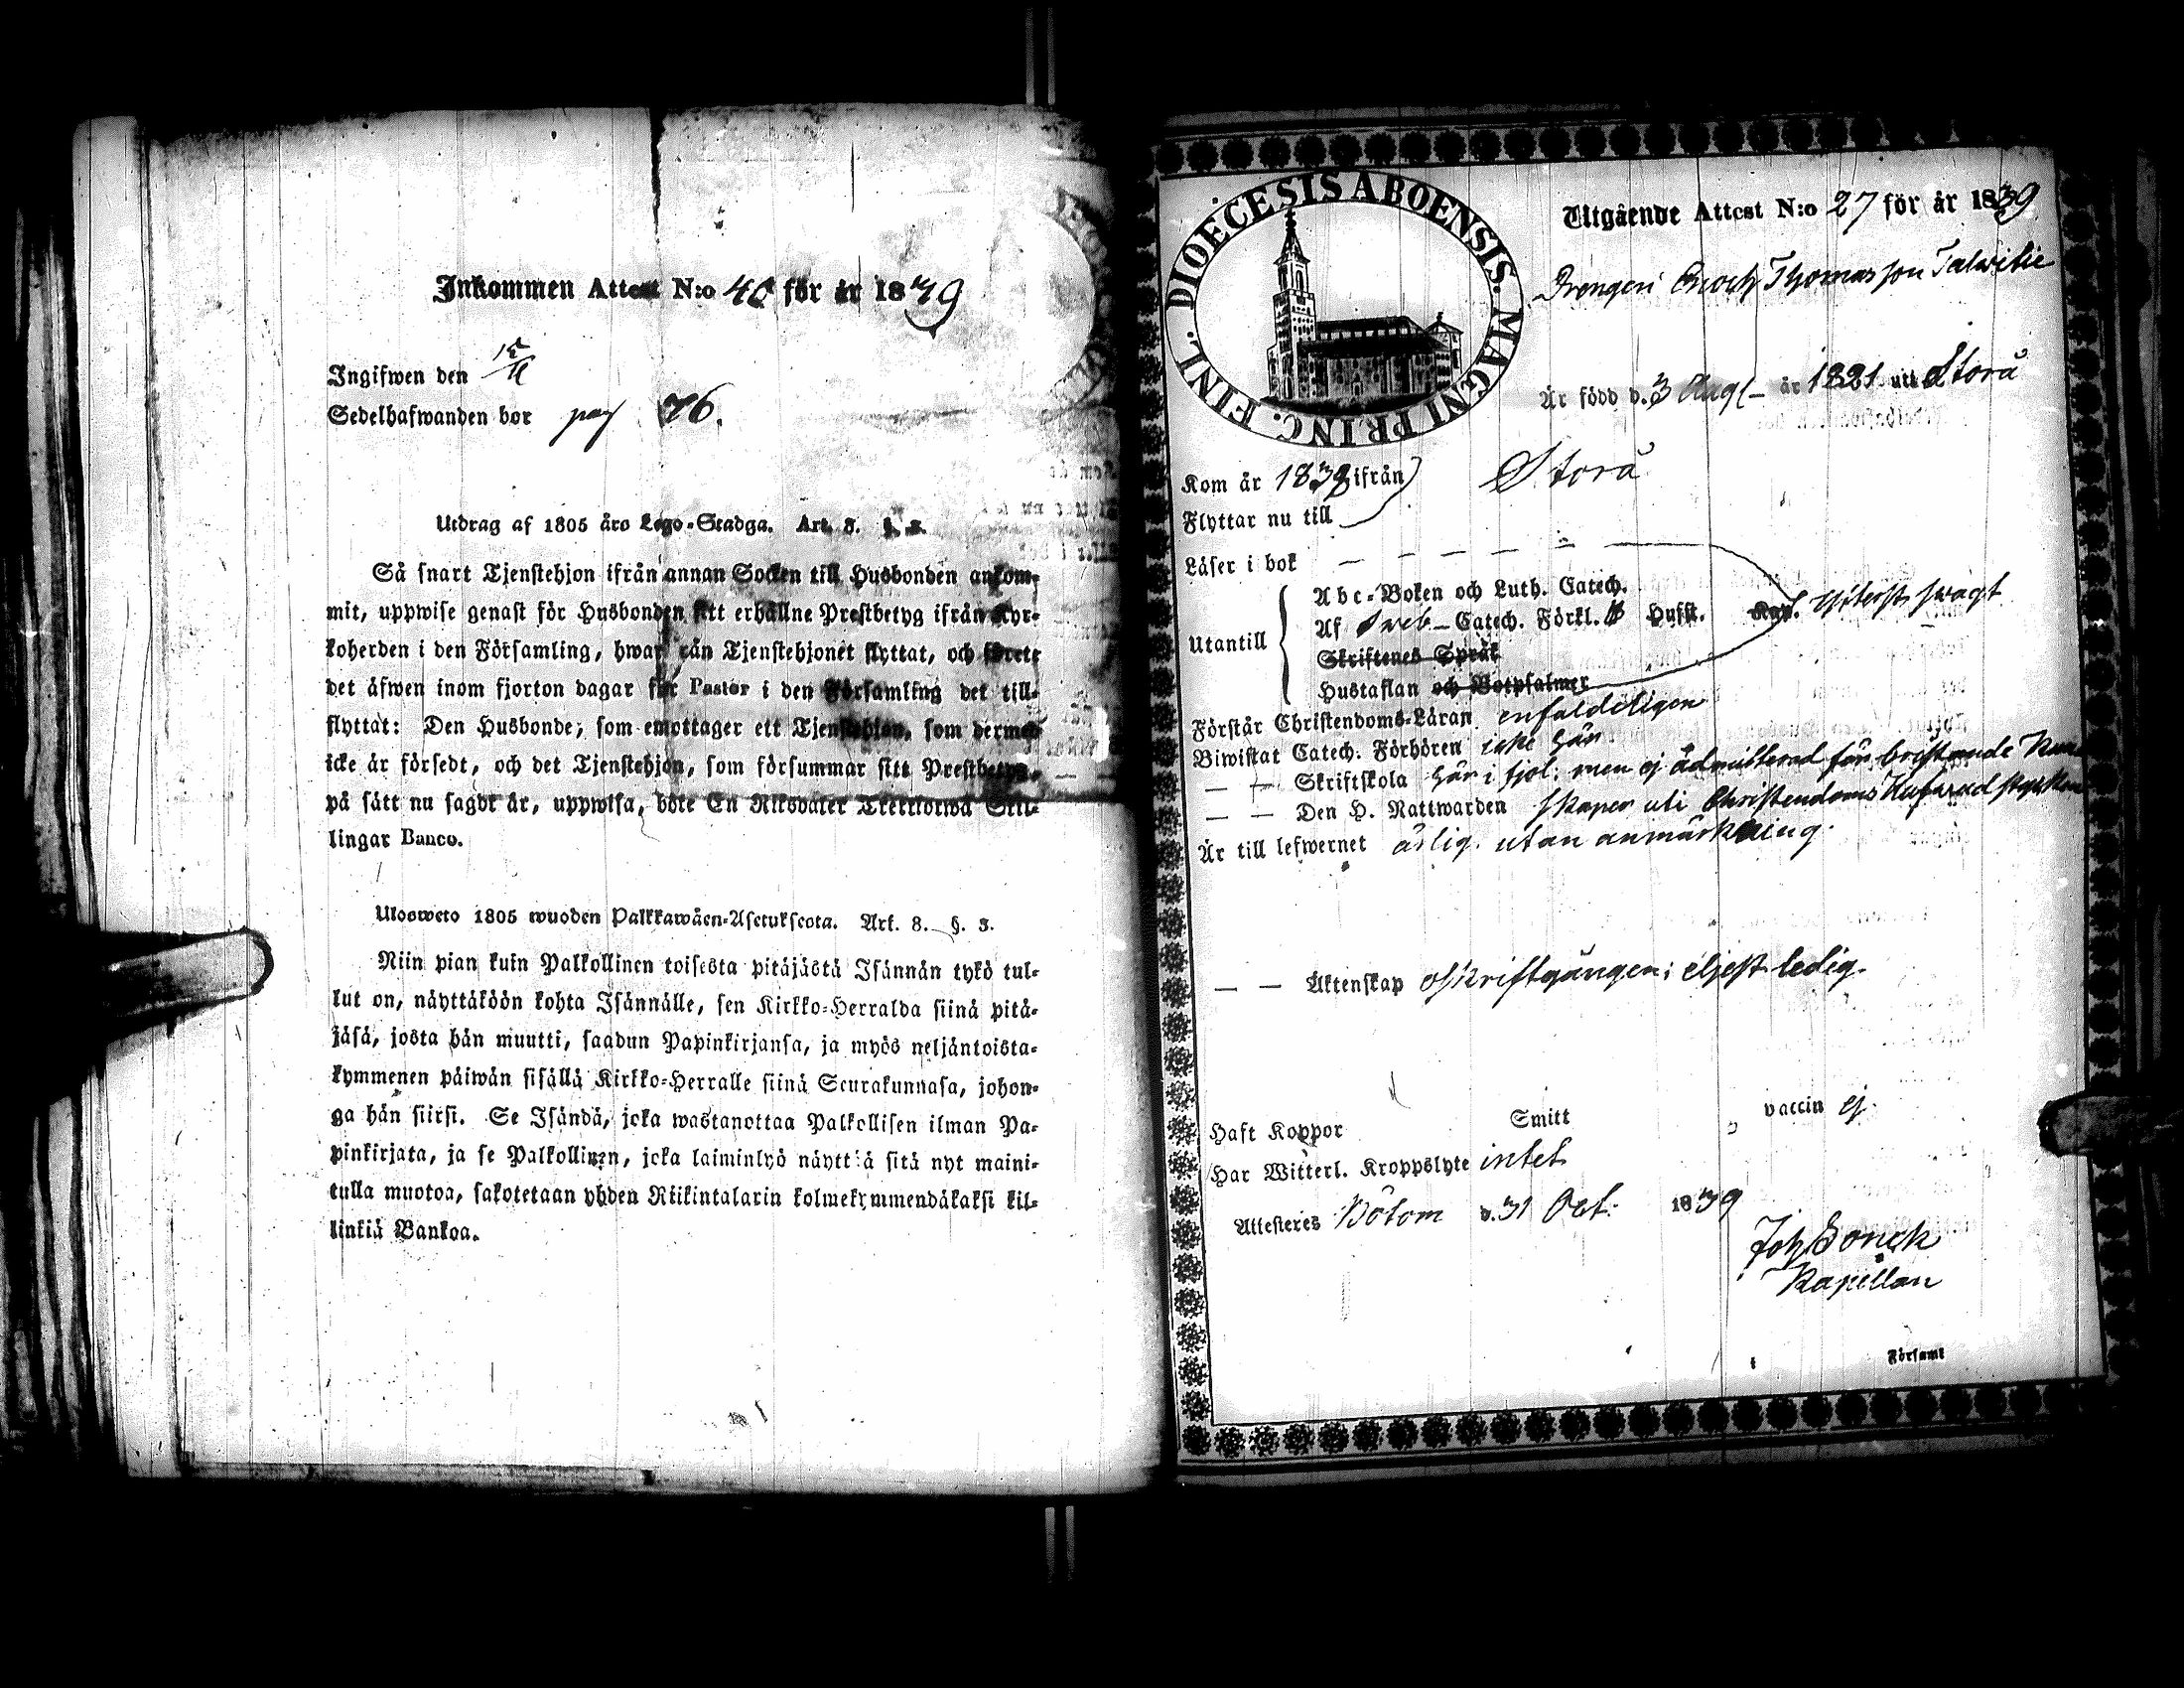 Inkommen Attest N:o 40 för år 1839
Ingifwen den 15/11
Sedelhafwanden bor pag 76.
Utdrag af 1805 års Lego-Stadga. Art. 8. §. 3.
Så snart Tjenstehjon ifrån annan Socken till Husbonden ankom-
mit, uppwise genast för Husbonden sitt erhållne Prestbetyg ifrån Kyr-
koherden i den Församling, hwarifrån Tjenstehjonet flyttat, och förete
det äfwen inom fjorton dagar för Pastor i den Församling det till-
flyttat: Den Husbonde, som emottager ett Tjenstehjon, som dermed
icke är försedt, och det Tjenstehjon, som försummar sitt Prestbetyg,
på sätt nu sagdt är, uppwisa, böte En Riksdaler Trettiotwå Skil-
lingar Banco.
Ulosweto 1805 wuoden Palkkawäen-Asetuksesta. Art. 8. §. 3.
Niin pian kuin Palkollinen toisesta pitäjästä Isännän tykö tul-
lut on, näyttäköön kohta Isännälle, sen Kirkko-Herralda siinä pitä-
jäsä, josta hän muutti, saadun Papinkirjansa, ja myös neljäntoista-
kymmenen päiwän sisällä Kirkko-Herralle siinä Seurakunnasa, johon-
ga hän siirsi. Se Isändä, joka wastanottaa Palkollisen ilman Pa-
pinkirjata, ja se Palkollinen, joka laiminlyö näyttää sitä nyt maini-
tulla muotoa, sakotetaan yhden Riikintalarin kolmekymmendäkaksi kil-
linkiä Bankoa.
DIOECESIS ABOENSIS. MAGNI PRINC. FINL.
Utgående Attest N:o 27 för år 1839
Drengen Enoch Thomasson Talwitie
Är född d. 3 Aug. år 1821 uti Storå
Kom år 1838 ifrån Storå
Flyttar nu till
Läser i bok
Utantill
Abc-Boken och Luth. Catech.
Af Sveb. Catech. Förkl. Husst. Kap. ytterst swagt
Skriftenes Språk
Hustaflan och Botpsalmer
Förstår Christendoms-Läran enfaldeligen
Biwistat Catech. Förhören icke här
— — Skriftskola här i fjol; men ej admitterad för bristande Kun-
— — Den H. Nattwarden skaper uti Christendoms Hufwudstycken
Är till lefwernet ärlig. utan anmärkning.
— — Äktenskap oskriftgången; eljest ledig.
Haft Koppor Smitt vaccin ej.
Har Witterl. Kroppslyte intet
Attesteres Bötom d. 31 Oct. 1839
Joh Bonck
Kapellan
Församl